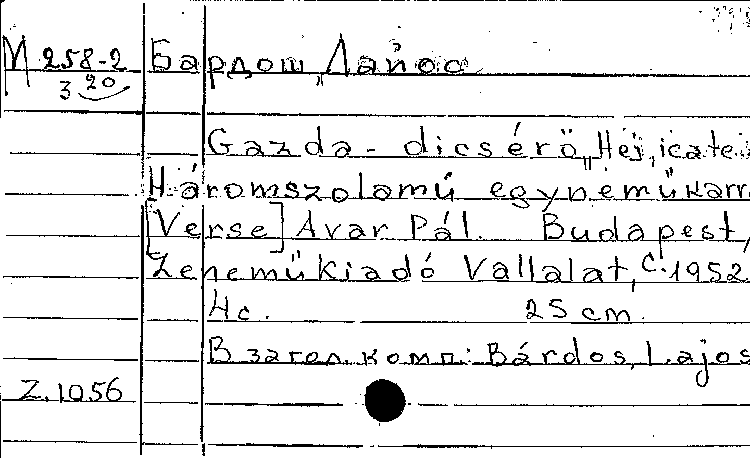 М 258-2 Бардош, Лайос
3 20
Gazda-dicsérő „Hej, icate
Háromszolamú egyneműkarr
[Verse] Avar Pál. Budapest,
Zeneműkiadó Vallalat, c.1952.
4c. 25 cm.
В загол. комп: Bárdos, Lajos
Z.1056